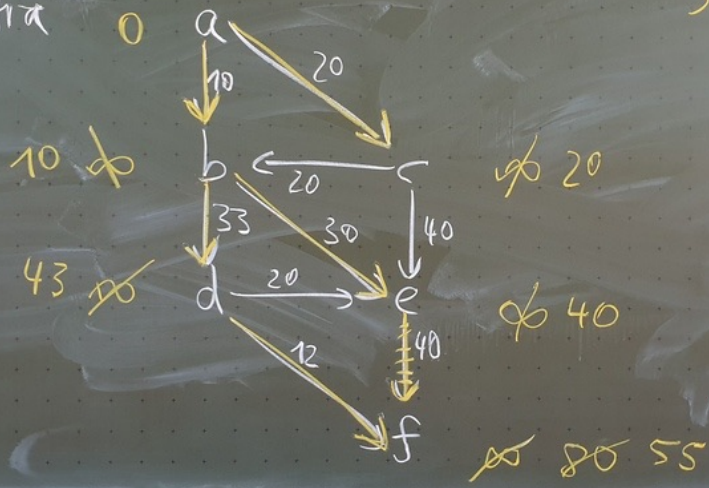 0 a
10 20
10 ∞ b 20 c ∞ 20
33 30 40
43 ∞ d 20 e ∞ 40
12 40
f ∞ 80 55